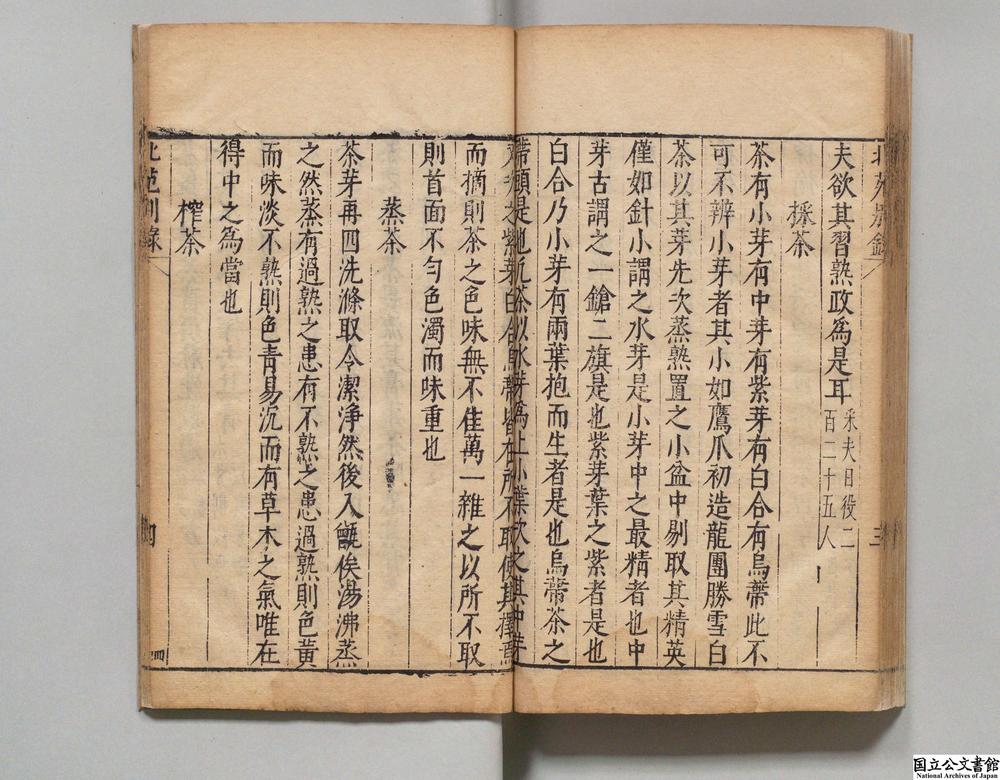 北苑別錄
三
夫欲其習熟政爲是耳采夫日役二百二十五人
採茶
茶有小芽有中芽有紫芽有白合有烏蔕此不
可不辨小芽者其小如鷹爪初造龍團勝雪白
茶以其芽先次蒸熟置之小盆中剔取其精英
僅如針小謂之水芽是小芽中之最精者也中
芽古謂之一鎗二旗是也紫芽葉之紫者是也
白合乃小芽有兩葉抱而生者是也烏蔕茶之
蔕頭是也凡茶以水芽爲上小芽次之其中芽
又次之紫芽白合烏蔕皆在所不取使其擇
而摘則茶之色味無不佳萬一雜之以所不取
則首面不勻色濁而味重也
蒸茶
茶芽再四洗滌取令潔淨然後入甑俟湯沸蒸
之然蒸有過熟之患有不熟之患過熟則色黃
而味淡不熟則色青易沉而有草木之氣唯在
得中之爲當也
榨茶
北苑別錄
四
国立公文書館
National Archives of Japan